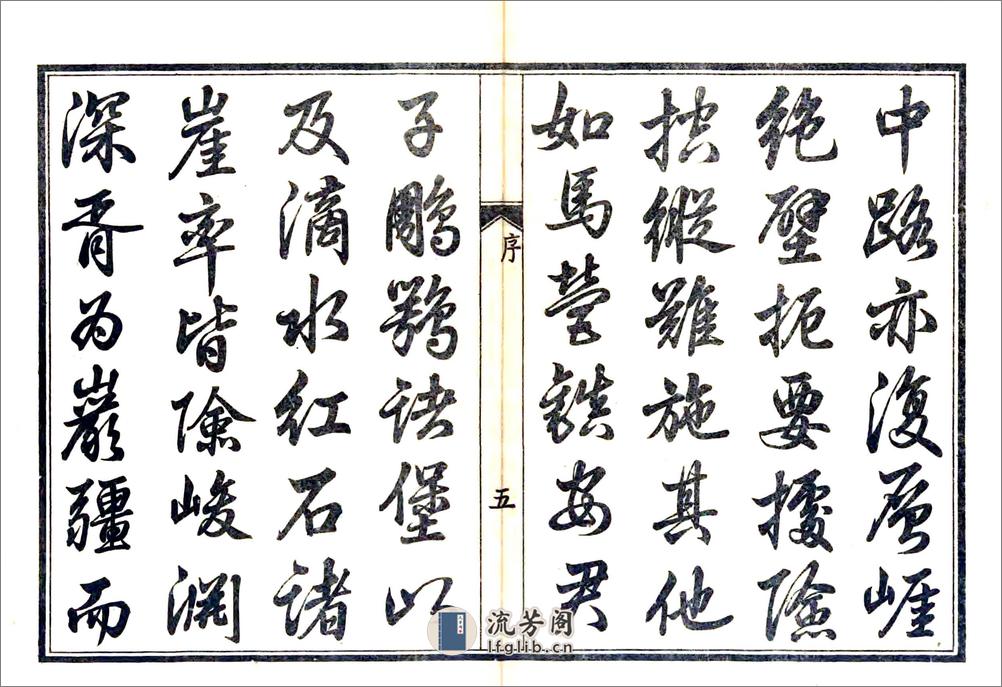 中路亦復層崕
絶壁扼要據險
控縱難施其他
如馬營鎮安君
子鵰鶚諸堡以
及滴水紅石諸
崖率皆險峻淵
深胥為巖疆而
序
五
流芳阁
lfglib.cn